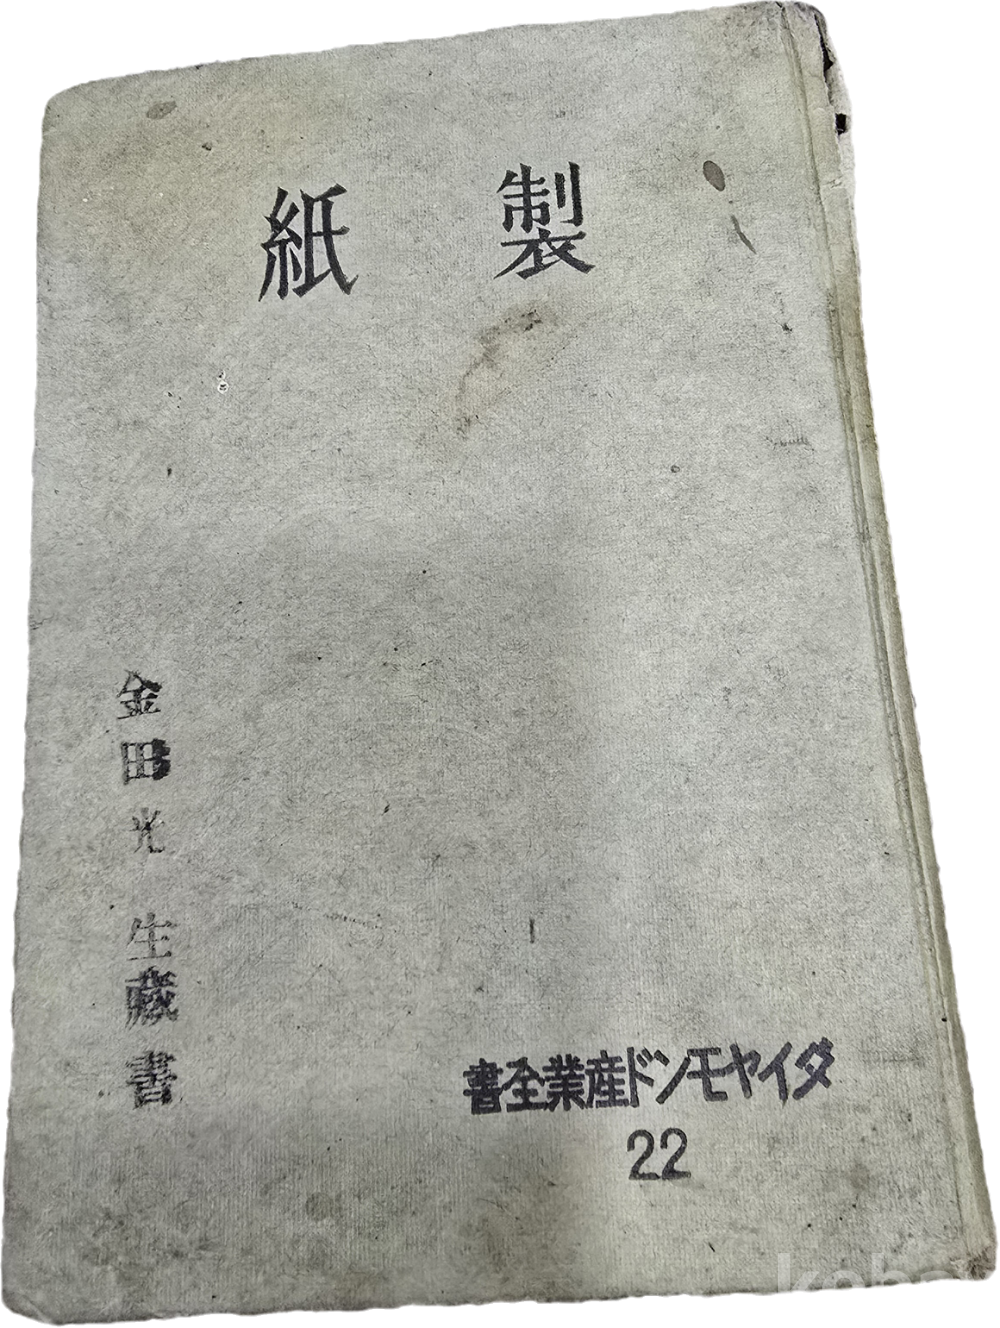 製紙
ダイヤモンド産業全書
22
金田光生藏書